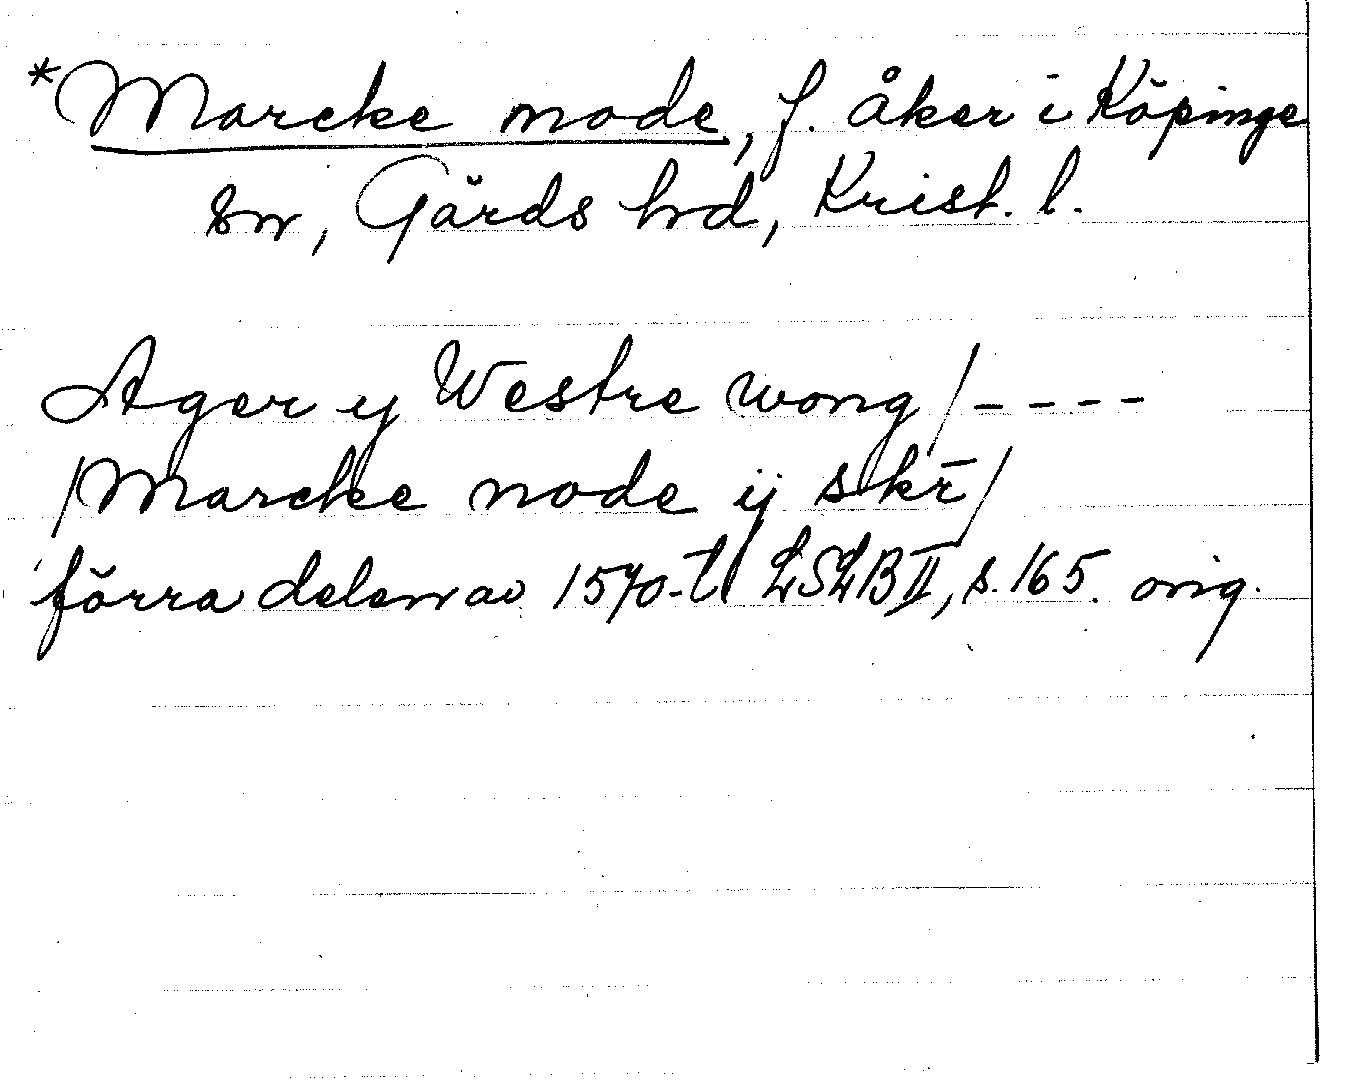 *Marcke node, f. åker i Köpinge
sn, Gärds hrd, Krist. l.
Ager y Westre wong /----
/Marcke node ij skr̄/
förra delen av 1570-t. LSLB II, s. 165. orig.